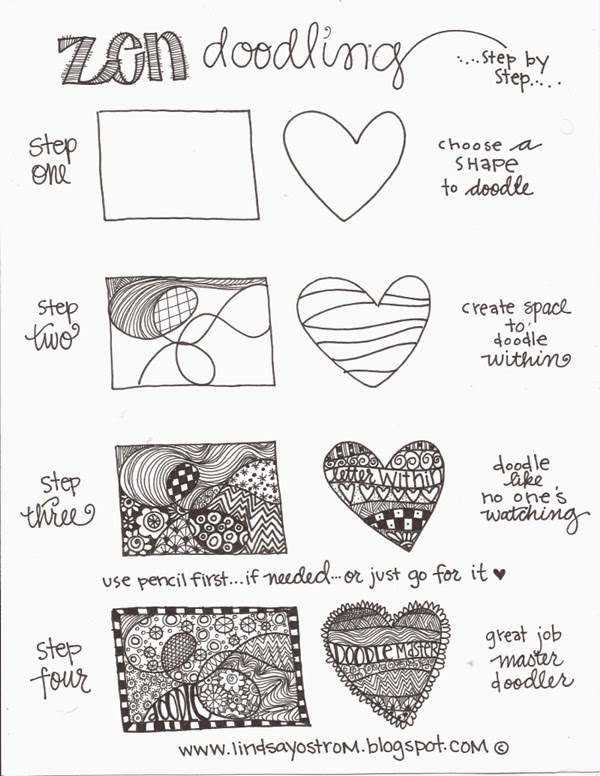 zen doodling
....step by
step....
step
one
choose a
SHAPE
to doodle
step
two
create space
to
doodle
within
step
three
letter within
doodle
like
no one's
watching
use pencil first...if needed...or just go for it ♥
step
four
DOODLE
DOODLE MASTER
great job
master
doodler
www.lindsayostrom.blogspot.com ©